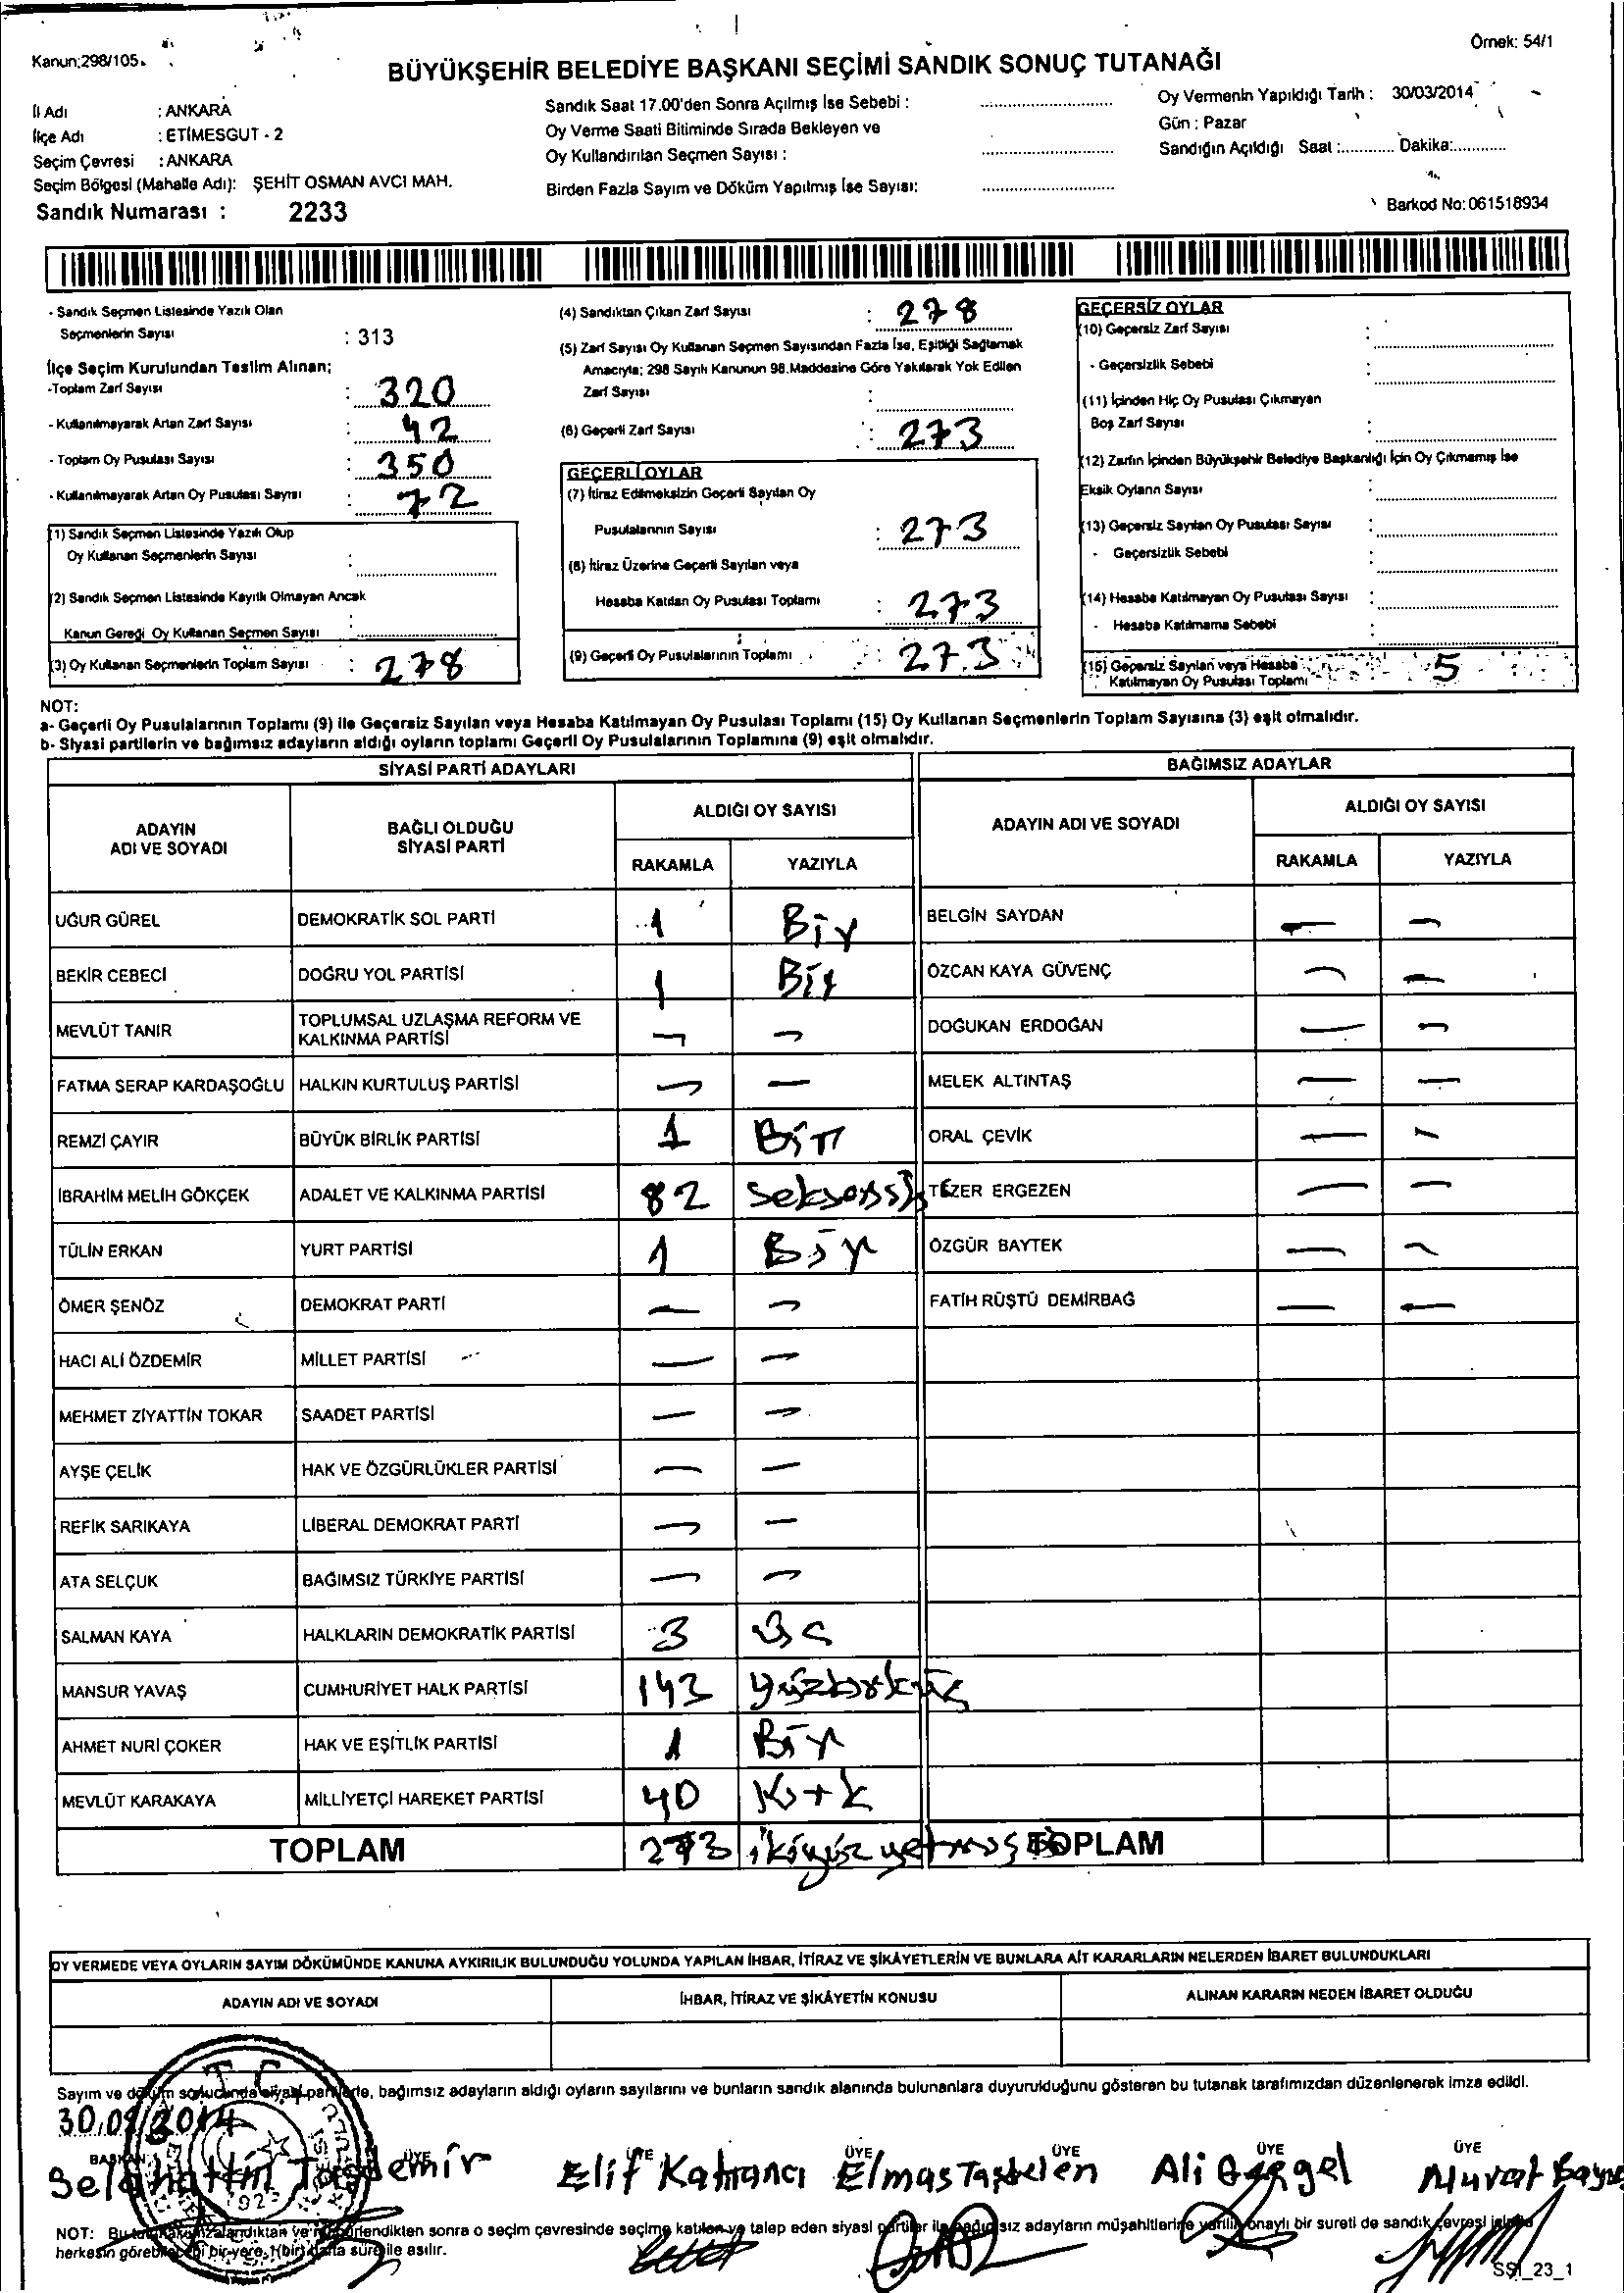 Örnek: 54/1
Kanun;298/105
BÜYÜKŞEHİR BELEDİYE BAŞKANI SEÇİMİ SANDIK SONUÇ TUTANAĞI
İl Adı : ANKARA
İlçe Adı : ETİMESGUT - 2
Seçim Çevresi : ANKARA
Seçim Bölgesi (Mahalle Adı): ŞEHİT OSMAN AVCI MAH.
Sandık Numarası : 2233
Sandık Saat 17.00'den Sonra Açılmış İse Sebebi :
Oy Verme Saati Bitiminde Sırada Bekleyen ve
Oy Kullandırılan Seçmen Sayısı :
Birden Fazla Sayım ve Döküm Yapılmış İse Sayısı:
Oy Vermenin Yapıldığı Tarih : 30/03/2014
Gün : Pazar
Sandığın Açıldığı Saat :............ Dakika:............
Barkod No: 061518934
- Sandık Seçmen Listesinde Yazılı Olan
Seçmenlerin Sayısı : 313
İlçe Seçim Kurulundan Teslim Alınan;
-Toplam Zarf Sayısı : 320
- Kullanılmayarak Artan Zarf Sayısı : 42
- Toplam Oy Pusulası Sayısı : 350
- Kullanılmayarak Artan Oy Pusulası Sayısı : 72
(1) Sandık Seçmen Listesinde Yazılı Olup
Oy Kullanan Seçmenlerin Sayısı :
(2) Sandık Seçmen Listesinde Kayıtlı Olmayan Ancak
Kanun Gereği Oy Kullanan Seçmen Sayısı :
(3) Oy Kullanan Seçmenlerin Toplam Sayısı : 278
(4) Sandıktan Çıkan Zarf Sayısı : 278
(5) Zarf Sayısı Oy Kullanan Seçmen Sayısından Fazla İse, Eşitliği Sağlamak
Amacıyla; 298 Sayılı Kanunun 98.Maddesine Göre Yakılarak Yok Edilen
Zarf Sayısı :
(6) Geçerli Zarf Sayısı : 273
GEÇERLİ OYLAR
(7) İtiraz Edilmeksizin Geçerli Sayılan Oy
Pusulalarının Sayısı : 273
(8) İtiraz Üzerine Geçerli Sayılan veya
Hesaba Katılan Oy Pusulası Toplamı : 273
(9) Geçerli Oy Pusulalarının Toplamı : 273
GEÇERSİZ OYLAR
(10) Geçersiz Zarf Sayısı :
- Geçersizlik Sebebi :
(11) İçinden Hiç Oy Pusulası Çıkmayan
Boş Zarf Sayısı :
(12) Zarfın İçinden Büyükşehir Belediye Başkanlığı İçin Oy Çıkmamış İse
Eksik Oyların Sayısı :
(13) Geçersiz Sayılan Oy Pusulası Sayısı :
- Geçersizlik Sebebi :
(14) Hesaba Katılmayan Oy Pusulası Sayısı :
- Hesaba Katılmama Sebebi :
(15) Geçersiz Sayılan veya Hesaba
Katılmayan Oy Pusulası Toplamı : 5
NOT:
a- Geçerli Oy Pusulalarının Toplamı (9) ile Geçersiz Sayılan veya Hesaba Katılmayan Oy Pusulası Toplamı (15) Oy Kullanan Seçmenlerin Toplam Sayısına (3) eşit olmalıdır.
b- Siyasi partilerin ve bağımsız adayların aldığı oyların toplamı Geçerli Oy Pusulalarının Toplamına (9) eşit olmalıdır.
SİYASİ PARTİ ADAYLARI BAĞIMSIZ ADAYLAR
ADAYIN ADI VE SOYADI BAĞLI OLDUĞU SİYASİ PARTİ ALDIĞI OY SAYISI ADAYIN ADI VE SOYADI ALDIĞI OY SAYISI
RAKAMLA YAZIYLA RAKAMLA YAZIYLA
UĞUR GÜREL DEMOKRATİK SOL PARTİ 1 Bir BELGİN SAYDAN — —
BEKİR CEBECİ DOĞRU YOL PARTİSİ 1 Bir ÖZCAN KAYA GÜVENÇ — —
MEVLÜT TANIR TOPLUMSAL UZLAŞMA REFORM VE KALKINMA PARTİSİ — — DOĞUKAN ERDOĞAN — —
FATMA SERAP KARDAŞOĞLU HALKIN KURTULUŞ PARTİSİ — — MELEK ALTINTAŞ — —
REMZİ ÇAYIR BÜYÜK BİRLİK PARTİSİ 1 Bir ORAL ÇEVİK — —
İBRAHİM MELİH GÖKÇEK ADALET VE KALKINMA PARTİSİ 82 TEZER ERGEZEN — —
TÜLİN ERKAN YURT PARTİSİ 1 Bir ÖZGÜR BAYTEK — —
ÖMER ŞENÖZ DEMOKRAT PARTİ — — FATİH RÜŞTÜ DEMİRBAĞ — —
HACI ALİ ÖZDEMİR MİLLET PARTİSİ — —
MEHMET ZİYATTİN TOKAR SAADET PARTİSİ — —
AYŞE ÇELİK HAK VE ÖZGÜRLÜKLER PARTİSİ — —
REFİK SARIKAYA LİBERAL DEMOKRAT PARTİ — —
ATA SELÇUK BAĞIMSIZ TÜRKİYE PARTİSİ — —
SALMAN KAYA HALKLARIN DEMOKRATİK PARTİSİ 3 üç
MANSUR YAVAŞ CUMHURİYET HALK PARTİSİ 143 yüzkırküç
AHMET NURİ ÇOKER HAK VE EŞİTLİK PARTİSİ 1 Bir
MEVLÜT KARAKAYA MİLLİYETÇİ HAREKET PARTİSİ 40 Kırk
TOPLAM 273 TOPLAM
OY VERMEDE VEYA OYLARIN SAYIM DÖKÜMÜNDE KANUNA AYKIRILIK BULUNDUĞU YOLUNDA YAPILAN İHBAR, İTİRAZ VE ŞİKÂYETLERİN VE BUNLARA AİT KARARLARIN NELERDEN İBARET BULUNDUKLARI
ADAYIN ADI VE SOYADI İHBAR, İTİRAZ VE ŞİKÂYETİN KONUSU ALINAN KARARIN NEDEN İBARET OLDUĞU
Sayım ve döküm sonucunda siyasi partilerle, bağımsız adayların aldığı oyların sayılarını ve bunların sandık alanında bulunanlara duyurulduğunu gösteren bu tutanak tarafımızdan düzenlenerek imza edildi.
30.03.2014
BAŞKAN ÜYE ÜYE ÜYE ÜYE ÜYE ÜYE
Selahattin Taşdemir Elif Katrancı Elmas Taşbelen Ali Murat
NOT: Bu tutanak imzalandıktan ve mühürlendikten sonra o seçim çevresinde seçime katılan ve talep eden siyasi partiler ile bağımsız adayların müşahitlerine verilir, onaylı bir sureti de sandık çevresi içinde
herkesin görebileceği bir yere 1 (bir) hafta süre ile asılır.
SSI_23_1